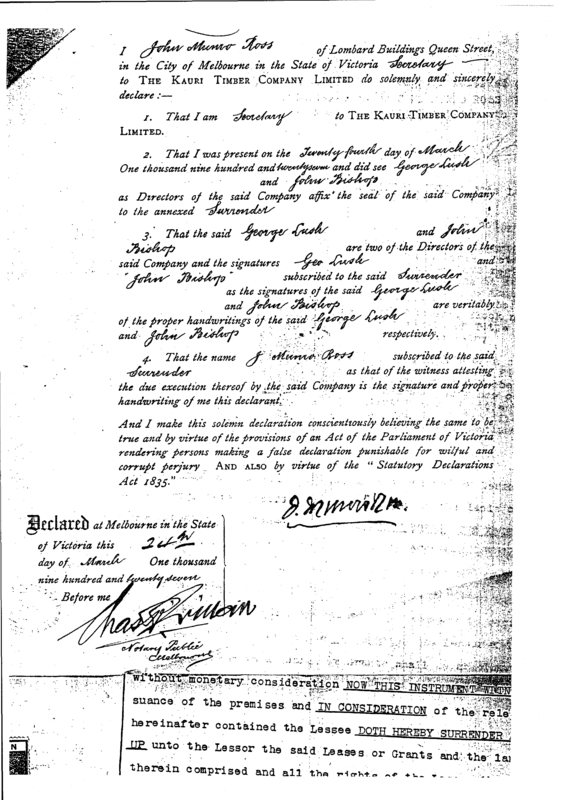 I John Munro Ross of Lombard Buildings Queen Street,
in the City of Melbourne in the State of Victoria Secretary
to THE KAURI TIMBER COMPANY LIMITED do solemnly and sincerely
declare :—
1. That I am Secretary to THE KAURI TIMBER COMPANY
LIMITED.
2. That I was present on the Twenty fourth day of March
One thousand nine hundred and twenty seven and did see George Lush
and John Bishop
as Directors of the said Company affix the seal of the said Company
to the annexed Surrender
3. That the said George Lush and John
Bishop are two of the Directors of the
said Company and the signatures Geo Lush and
"John Bishop" subscribed to the said Surrender
as the signatures of the said George Lush
and John Bishop are veritably
of the proper handwritings of the said George Lush
and John Bishop respectively.
4. That the name J Munro Ross subscribed to the said
Surrender as that of the witness attesting
the due execution thereof by the said Company is the signature and proper
handwriting of me this declarant.
And I make this solemn declaration conscientiously believing the same to be
true and by virtue of the provisions of an Act of the Parliament of Victoria
rendering persons making a false declaration punishable for wilful and
corrupt perjury AND ALSO by virtue of the "Statutory Declarations
Act 1835."
Declared at Melbourne in the State
of Victoria this 24th
day of March One thousand
nine hundred and twenty seven
Before me
Notary Public
Melbourne
without monetary consideration NOW THIS INSTRUMENT WITN
suance of the premises and IN CONSIDERATION of the rele
hereinafter contained the Lessee DOTH HEREBY SURRENDER
UP unto the Lessor the said Leases or Grants and the la
therein comprised and all the rights of the
N